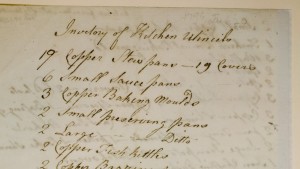 Inventory of Kitchen Utincils
19 Copper Stew pans — 19 Covers
6 Small Sauce pans
3 Copper Baking Moulds
2 Small preserving pans
2 Large — Ditto
2 Copper Fish Kettles
Copper